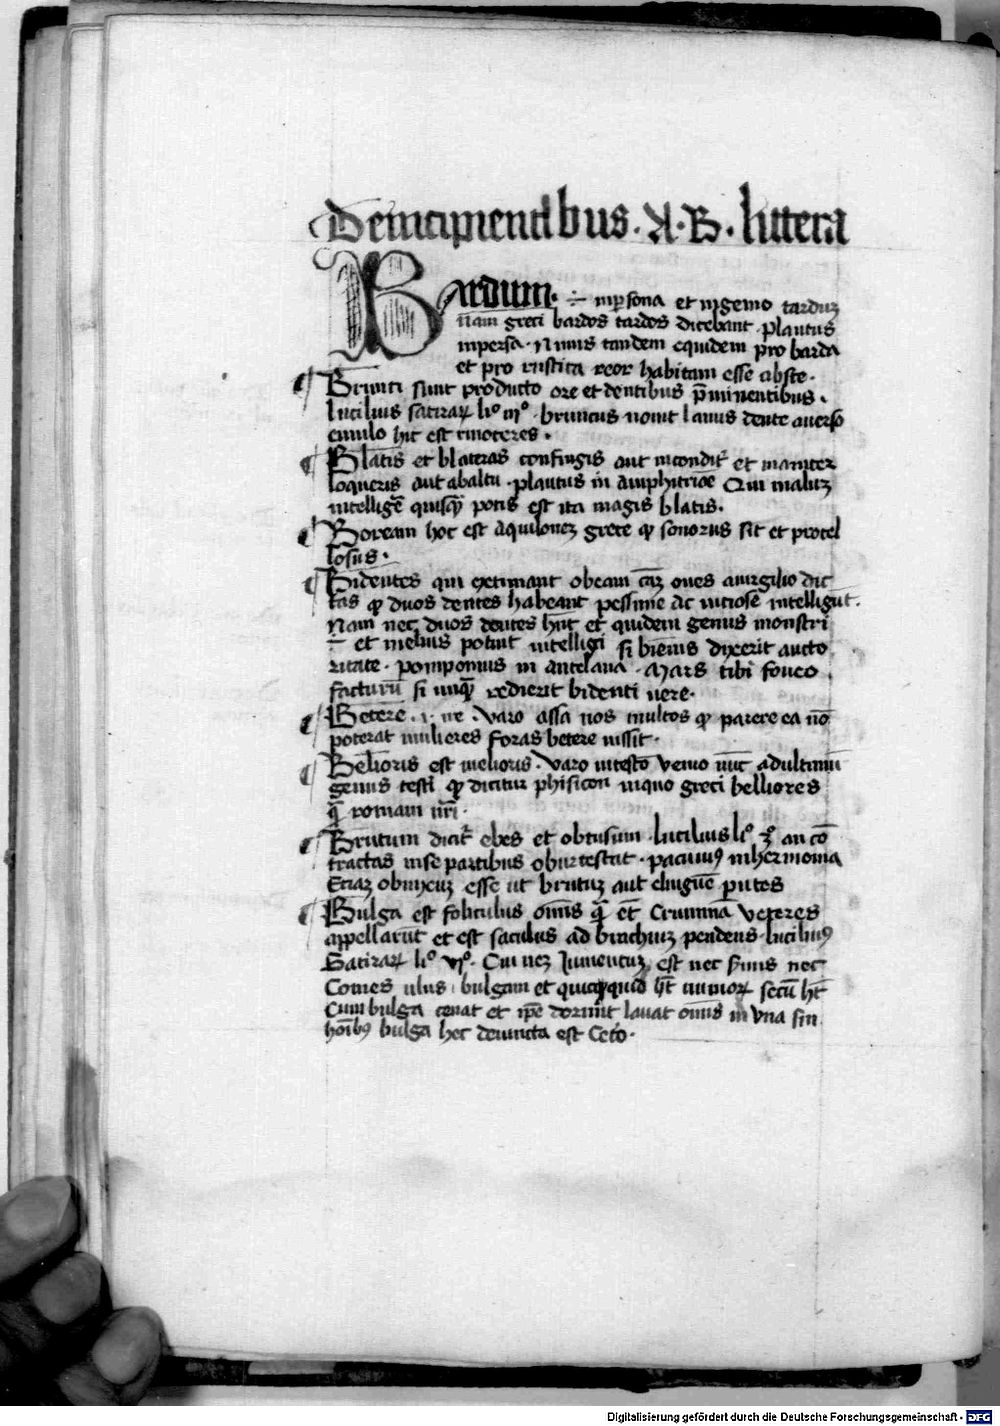 De incipientibus · A · B · littera
Bardum · ÷ inpsona et ingenio tarduꝫ
nam greci bardos tardos dicebant · plautus
inpersa · Nimis tandem equidem pro barda
et pro rustica reor habitam esse abste ·
¶ Brunti sunt producto ore et dentibus p̄minentibus ·
lucilius satiraꝝ liº iijº · bruncus novit lanus dente averso
emulo hic est rinoceres ·
¶ Blatis et blateras confingis aut inconditꝰ et inaniter
loqueris aut abaltu · plautus in Amphitrione Qui maluꝫ
intelligē quisqꝫ potis est ita magis blatis ·
¶ Boream hoc est Aquiloneꝫ grece ꝙ sonorus sit et procel
losus ·
¶ Bidentes qui extimant obeam cāꝫ oves avirgilio dic
tas ꝙ duos dentes habeant pessime ac viciose intelligūt ·
Nam nec duos dentes hn̄t et quidem genus monstri
÷ et melius potuit intelligi si biēnis dixerit aucto
ritate · pomponius in antelana · Mars tibi foveo
facturū si unqꝫ redierit bidenti vere ·
¶ Betere · i · ire · Varo assa nos multos ꝙ parere ea nō
poterat mulieres foras betere iussit ·
¶ Belioris est melioris · Varo intestō venio nūc adultimū
genus testi ꝙ dicitur phisicon inquo greci belliores
qꝫ romani nr̄i ·
¶ Brutum dicitꝰ ebes et obtusum · lucilius liº 2º an cō
tractas inse partibus oburtestat · pacuviꝰ inhermonia
Eciaꝫ obnixuꝫ esse ut brutuꝫ aut elinguē putes
¶ Bulga est foliculus om̄is qꝫ et̄ Cruminā Veteres
appellarūt et est saculus ad brachiuꝫ pendens · luciliuꝰ
Satiraꝝ liº vjº · Cui neꝫ Jumentuꝫ est nec servus nec
Comes ulus · bulgam et quicquid h̄t numoꝝ secū h̄t
Cum bulga cenat et ip̄e dormit lavat om̄is in una sin
hoībꝰ bulga hec devincta est Ceto ·
Digitalisierung gefördert durch die Deutsche Forschungsgemeinschaft - DFG